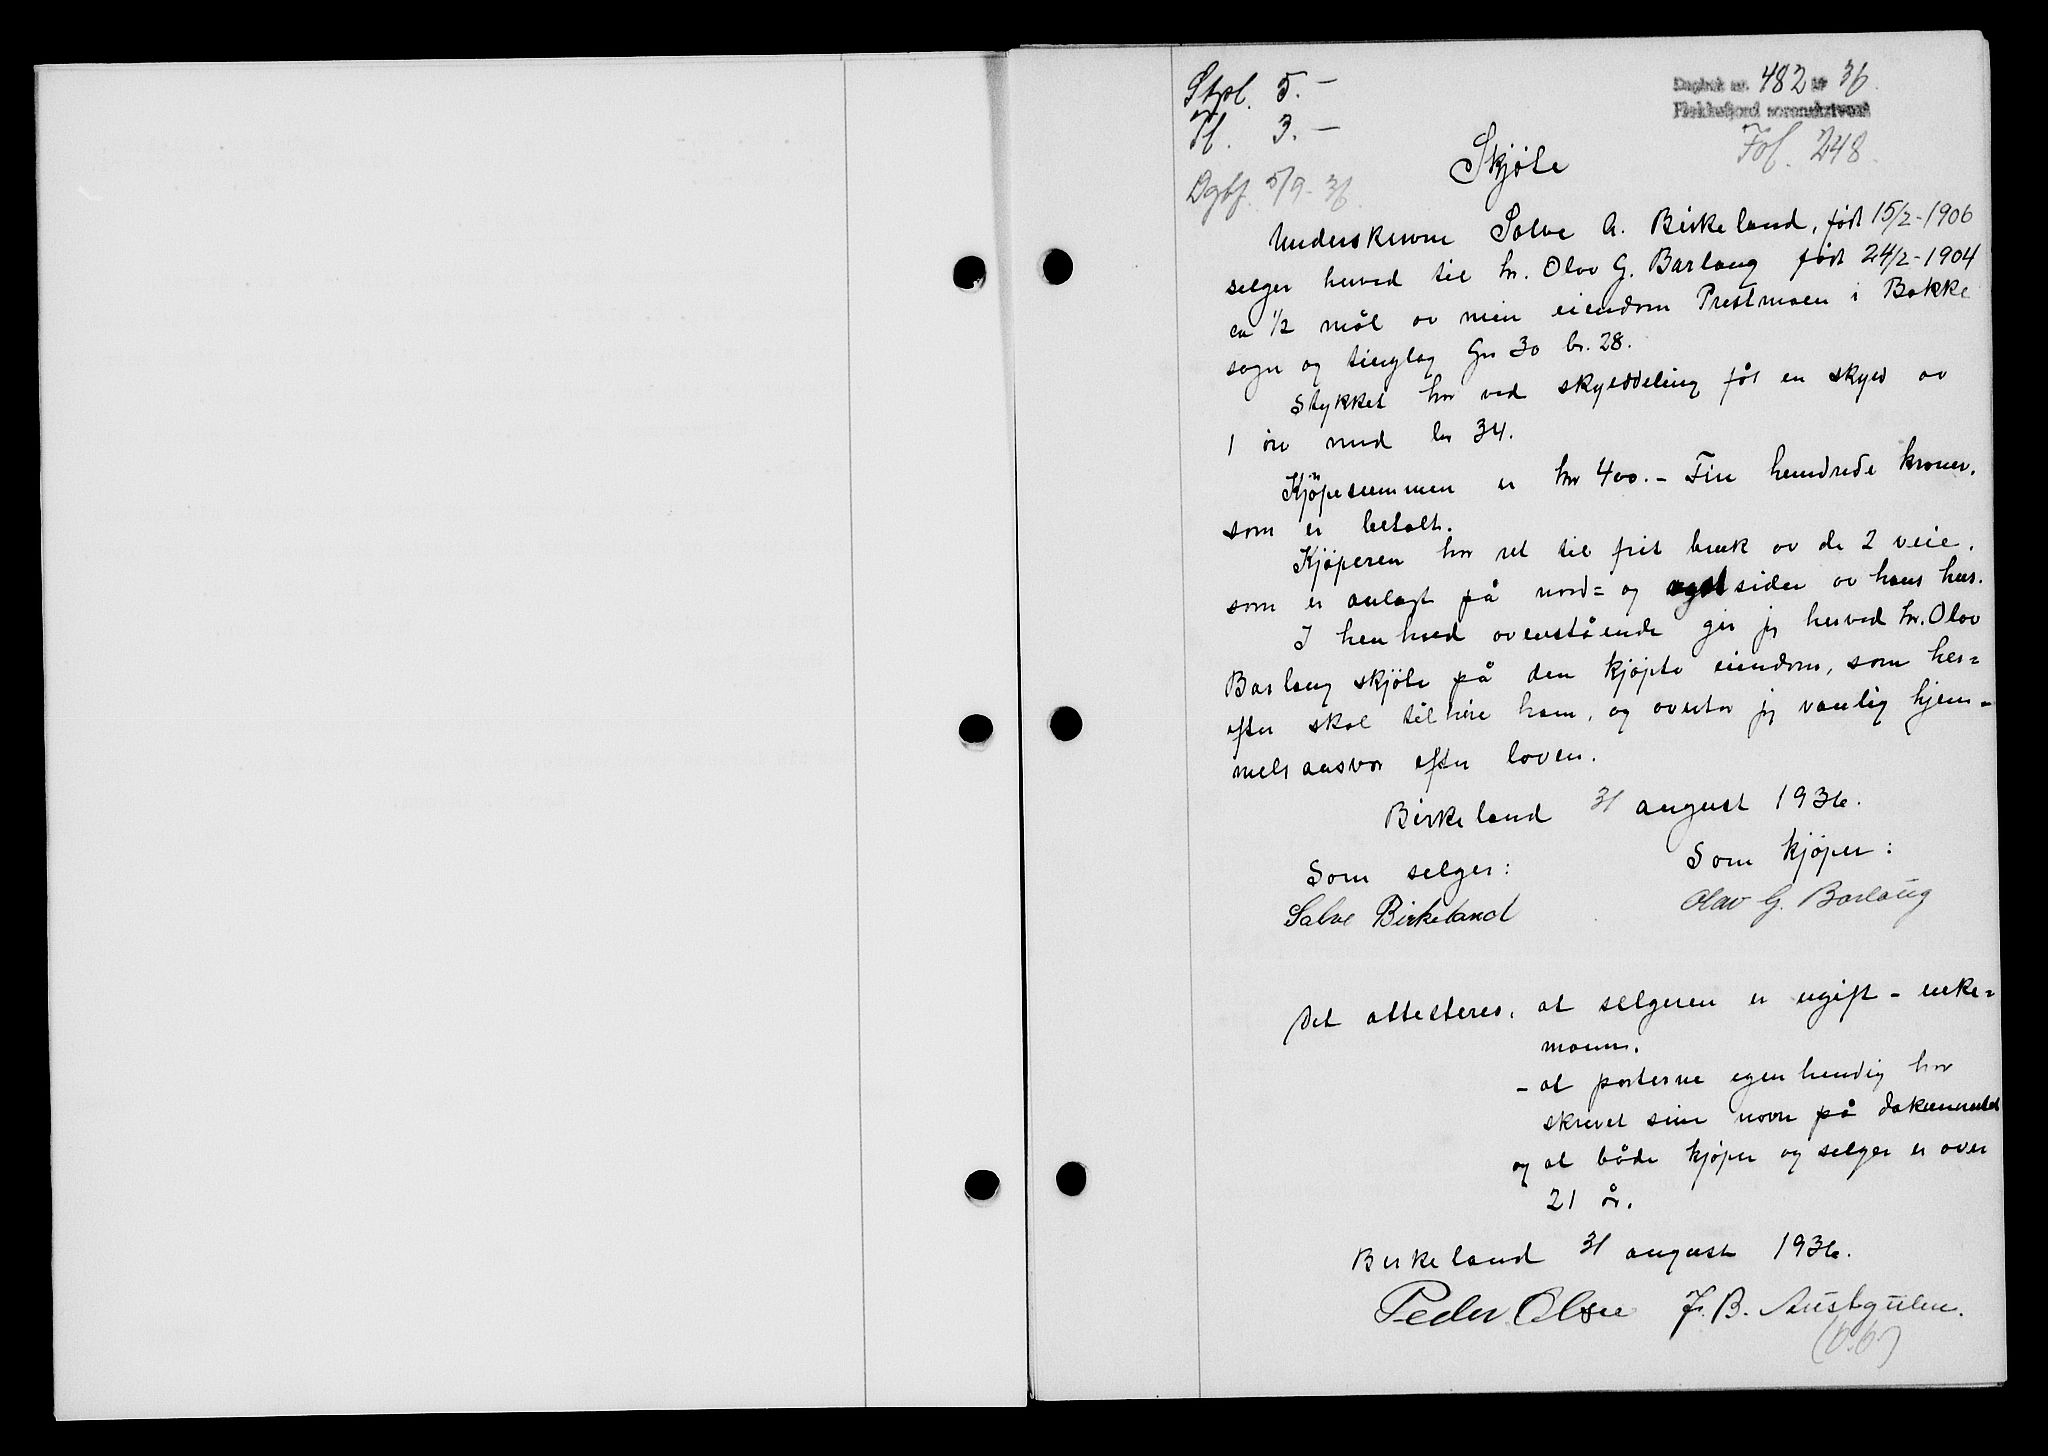 Stpl. 5.-
Tl. 3.-
Dgbf. 5/9-36.
Dagbok nr. 482 19 36.
Flekkefjord sorenskriveri
Fol. 248.
Skjöte
Underskrevne Salve A. Birkeland, født 15/2-1906
selger herved til hr. Olav G. Barlaug født 24/2-1904
ca 1/2 mål av min eiendom Prestmoen i Bakke
sogn og tinglag Gn 30 br. 28.
Stykket har ved skylddeling fåt en skyld av
1 øre med br 34.
Kjöpesummen er kr 400.- Fire hundrede kroner,
som er betalt.
Kjöperen har ret til frit bruk av de 2 veie,
som er anlagt på nord= og sider av hans hus.
I henhold ovenstående gir jeg herved hr. Olav
Barlaug skjöte på den kjöpte eiendom, som her=
efter skal tilhöre ham, og overtar jeg vanlig hjem=
melsansvar efter loven.
Birkeland 31 august 1936.
Som selger: Som kjöper:
Salve Birkeland Olav G. Barlaug
Det attesteres, at selgeren er ugift - enke=
mann.
- at parterne egenhendig har
skrevet sine navn på dokumentet
og at både kjöper og selger er over
21 år.
Birkeland 31 august 1936.
Peder Olsen J. B. Austgulen.